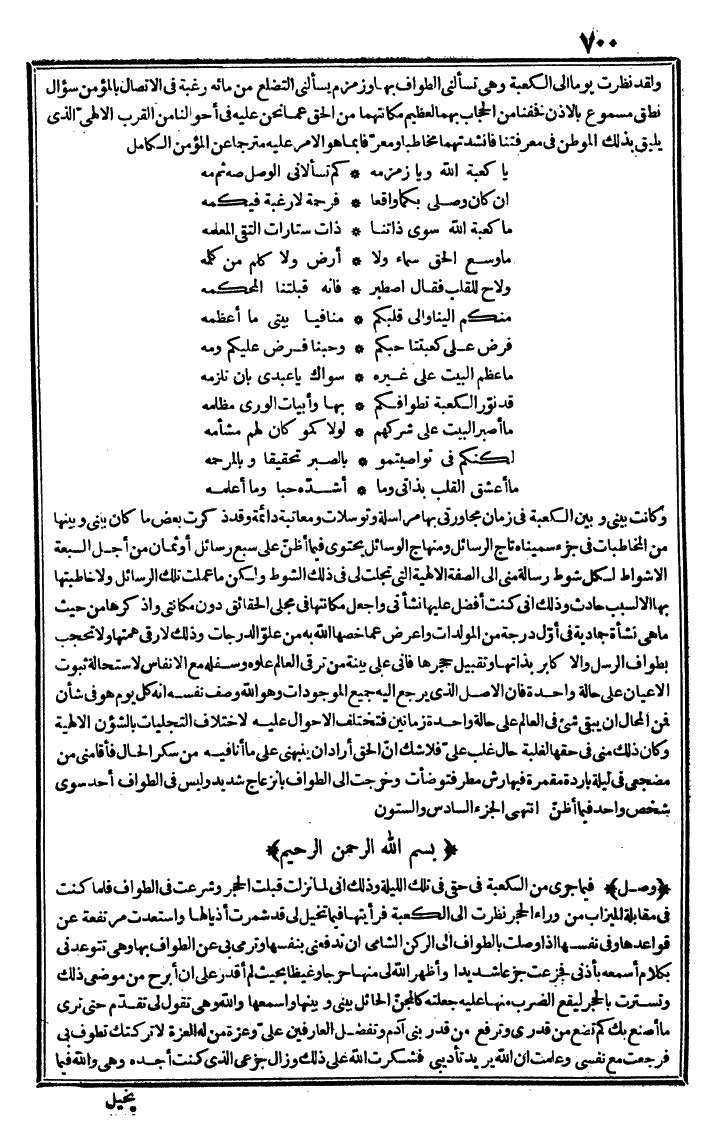 ٧٠٠
ولقد نظرت يوما الى الكعبة وهى تسألنى الطواف بها وزمزم يسألنى التضلع من مائه رغبة فى الاتصال بالمؤمن سؤال
نطق مسموع بالاذن فخفنا من الحجاب بهما لعظيم مكانتهما من الحق عما نحن عليه فى أحوالنا من القرب الالهىّ الذى
يليق بذلك الموطن فى معرفتنا فانشدتهما مخاطبا ومعرّفا بما هو الامر عليه مترجما عن المؤمن الكامل
يا كعبة الله ويا زمزمه * كم تسألانى الوصل صه ثم مه
ان كان وصلى بكما واقعا * فرحمة لا رغبة فيكمه
ما كعبة الله سوى ذاتنا * ذات ستارات التقى المعلمه
ماوسع الحق سماء ولا * أرض ولا كلم من كلمه
ولاح للقلب فقال اصطبر * فانه قبلتنا المحكمه
منكم الينا والى قلبكم * منافيا بيتى ما أعظمه
فرض على كعبتنا حبكم * وحبنا فرض عليكم ومه
ماعظم البيت على غيره * سواك ياعبدى بان تلزمه
قد نوّر الكعبة تطوافكم * بها وأبيات الورى مظلمه
ماأصبر البيت على شركهم * لولاكمو كان لهم مشأمه
لكنكم فى تواصيتمو * بالصبر تحقيقا وبالمرحمه
ماأعشق القلب بذاتى وما * أشدّه حبا وما أعلمه
وكانت بينى وبين الكعبة فى زمان مجاورتى بها مراسلة وتوسلات ومعاتبة دائمة وقد ذكرت بعض ما كان بينى وبينها
من المخاطبات فى جزء سميناه تاج الرسائل ومنهاج الوسائل يحتوى فيما أظنّ على سبع رسائل أو ثمان من أجل السبعة
الاشواط لكل شوط رسالة منى الى الصفة الالهية التى تجلت لى فى ذلك الشوط ولكن ما عملت تلك الرسائل ولا خاطبتها
بها الا لسبب حادث وذلك انى كنت أفضل عليها نشأتى واجعل مكانتها فى مجلى الحقائق دون مكانتى واذكرها من حيث
ماهى نشأة جمادية فى أوّل درجة من المولدات واعرض عما خصها الله به من علوّ الدرجات وذلك لارقى همتها ولا تحجب
بطواف الرسل والاكابر بذاتها وتقبيل حجرها فانى على بينة من ترقى العالم علوه وسفله مع الانفاس لاستحالة ثبوت
الاعيان على حالة واحدة فان الاصل الذى يرجع اليه جميع الموجودات وهو الله وصف نفسه انه كل يوم هو فى شأن
فمن المحال ان يبقى شئ فى العالم على حالة واحدة زمانين فتختلف الاحوال عليه لاختلاف التجليات بالشؤن الالهية
وكان ذلك منى فى حقها لغلبة حال غلب علىّ فلاشك انّ الحق أراد ان ينبهنى على ماأنافيه من سكر الحال فأقامنى من
مضجعى فى ليلة باردة مقمرة فيها رش مطر فتوضأت وخرجت الى الطواف بانزعاج شديد وليس فى الطواف أحد سوى
شخص واحد فيما أظنّ انتهى الجزء السادس والستون
﴿ بسم الله الرحمن الرحيم ﴾
﴿وصل﴾ فيما جرى من الكعبة فى حقى فى تلك الليلة وذلك انى لما نزلت قبلت الحجر وشرعت فى الطواف فلما كنت
فى مقابلة الميزاب من وراء الحجر نظرت الى الكعبة فرأيتها فيما تخيل لى قد شمرت أذيالها واستعدت مرتفعة عن
قواعدها وفى نفسها اذا وصلت بالطواف الى الركن الشامى ان تدفعنى بنفسها وترمى بى عن الطواف بها وهى تتوعدنى
بكلام أسمعه بأذنى فجزعت جزعا شديدا وأظهر الله لى منها حرجا وغيظا بحيث لم أقدر على ان أبرح من موضعى ذلك
وتسترت بالحجر ليقع الضرب منها عليه جعلته كالمجنّ الحائل بينى وبينها واسمعها والله وهى تقول لى تقدّم حتى ترى
ماأصنع بك كم تضع من قدرى وترفع من قدر بنى آدم وتفضل العارفين علىّ وعزة من له العزة لا تركتك تطوف بى
فرجعت مع نفسى وعلمت ان الله يريد تأديبى فشكرت الله على ذلك وزال جزعى الذى كنت أجده وهى والله فيما
يخيل